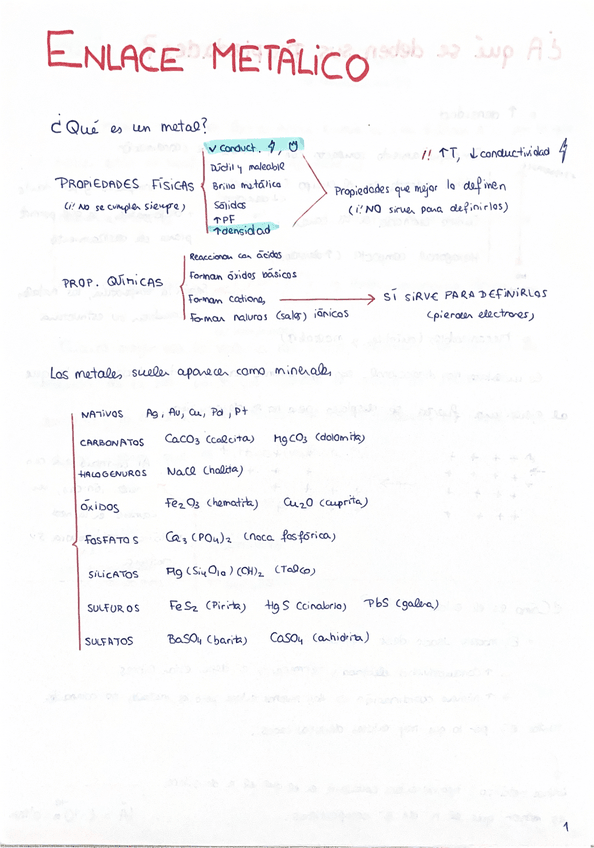 ENLACE METÁLICO
¿Qué es un metal?
PROPIEDADES FÍSICAS
(¡! No se cumplen siempre)
✓ Conduct.
Dúctil y maleable
Brillo metálico
Sólidos
↑PF
↑densidad
!! ↑T, ↓conductividad
Propiedades que mejor lo definen
(¡! NO sirven para definirlos)
PROP. QUÍMICAS
Reaccionan con ácidos
Forman óxidos básicos
Forman cationes → SÍ SIRVE PARA DEFINIRLOS
Forman haluros (sales) iónicos (pierden electrones)
Los metales suelen aparecer como minerales
NATIVOS Ag, Au, Cu, Pd, Pt
CARBONATOS CaCO3 (calcita) MgCO3 (dolomita)
HALOGENUROS NaCl (halita)
ÓXIDOS Fe2O3 (hematita) Cu2O (cuprita)
FOSFATOS Ca3(PO4)2 (roca fosfórica)
SILICATOS Mg(Si4O10)(OH)2 (Talco)
SULFUROS FeS2 (Pirita) HgS (cinabrio) PbS (galena)
SULFATOS BaSO4 (barita) CaSO4 (anhidrita)
1